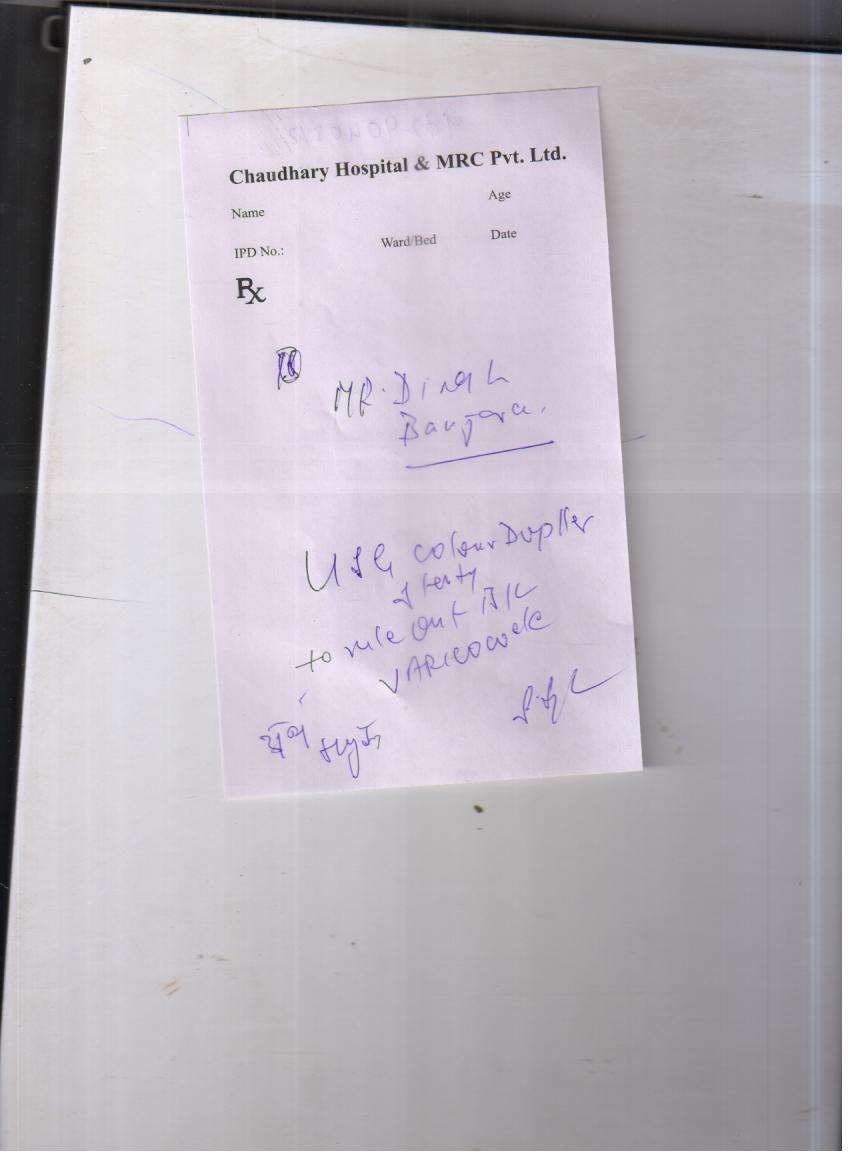 Chaudhary Hospital & MRC Pvt. Ltd.
Name Age
IPD No.: Ward/Bed Date
Rx
MR. Dinesh
Banjara.
USG colour Doppler
to rule out
VARICOCELE